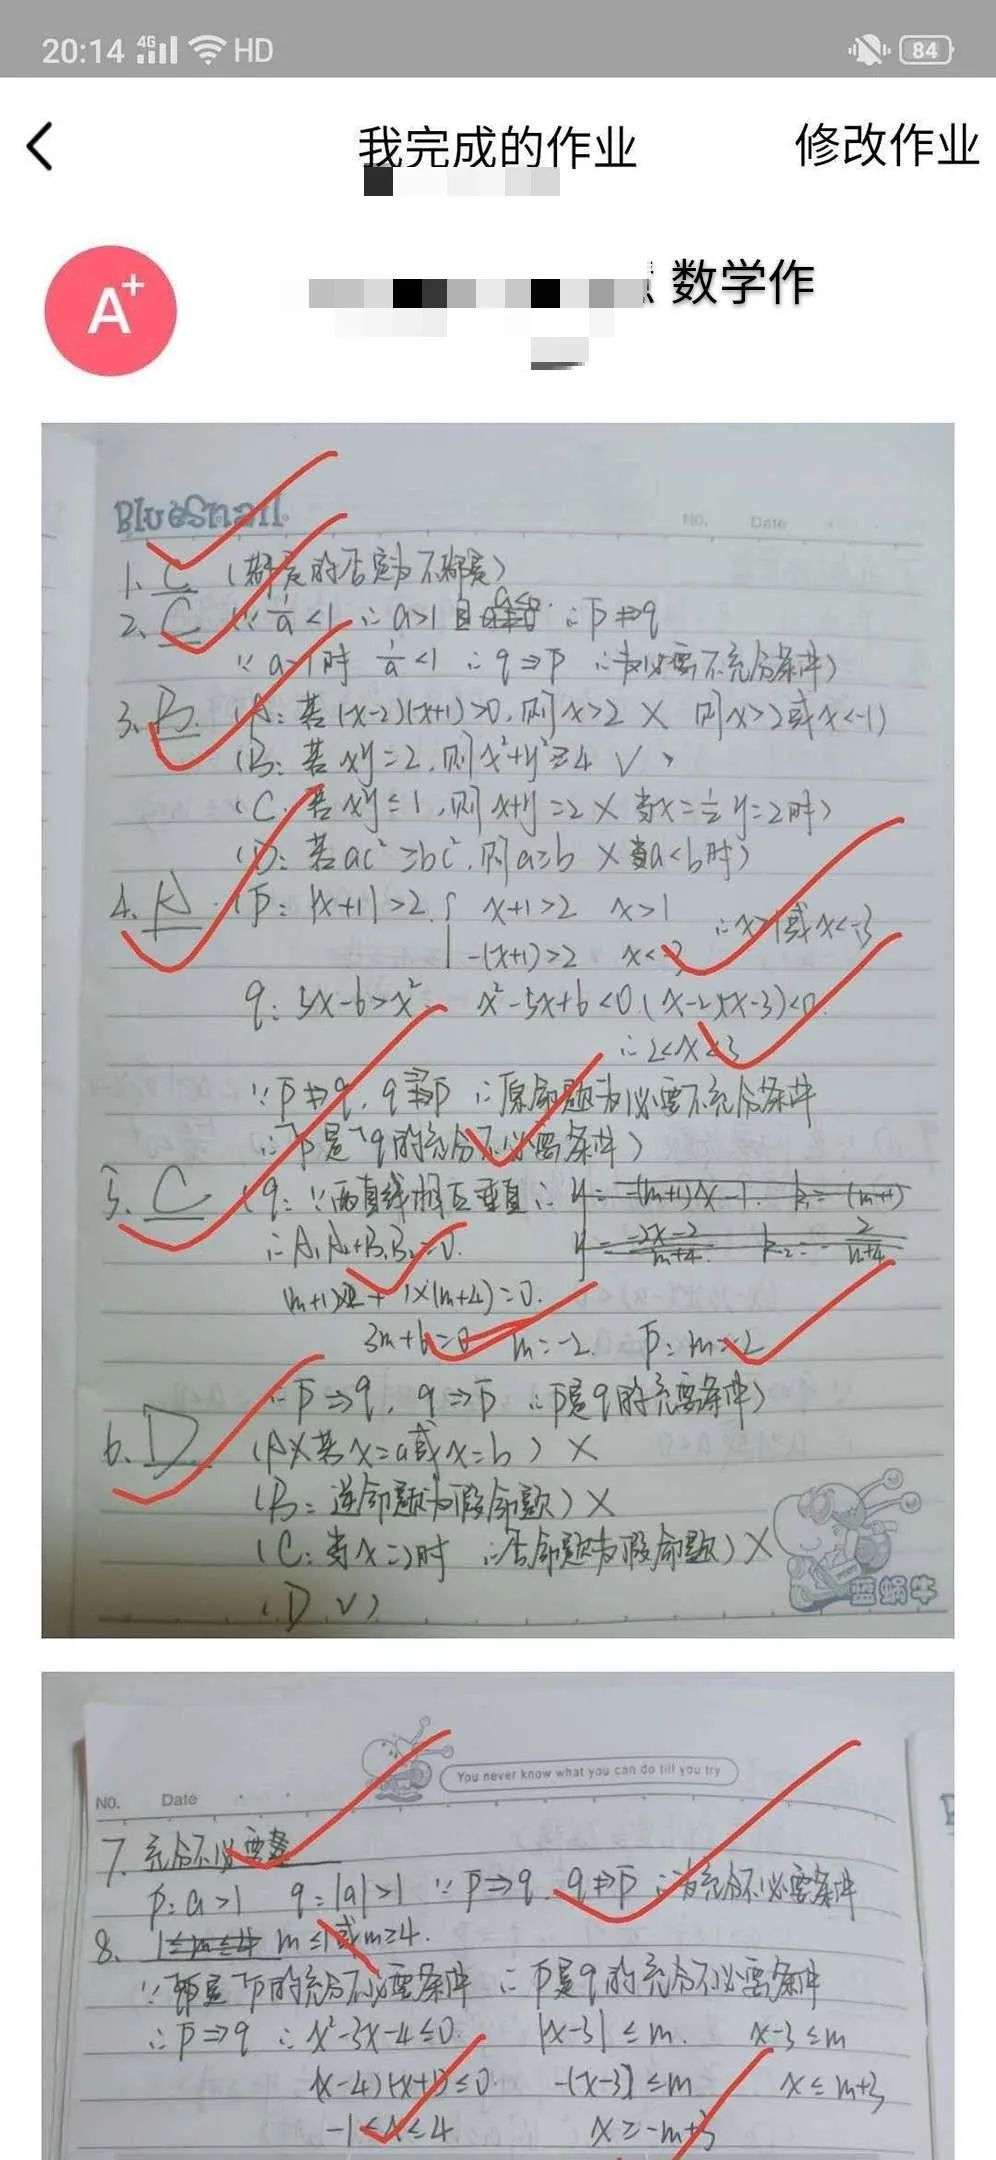 20:14 4G HD 84
我完成的作业 修改作业
A+ 数学作
BlueSnail
NO. Date
1. C (都是的否定为不都是)
2. C (∵ 1/a <1 ∴ a>1 且 a<0 ∴ p⇏q
∵ a>1时 1/a <1 ∴ q⇒p ∴为必要不充分条件)
3. B. (A: 若(x-2)(x+1)>0, 则x>2 × 则x>2或x<-1)
(B: 若xy=2, 则x²+y²≥4 √)
(C: 若xy≤1, 则x+y=2 × 当x=1/2 y=2时)
(D: 若ac²≥bc², 则a≥b × 当a<b时)
4. A. (p: |x+1|>2. { x+1>2 x>1 ∴x>1或x<-3
-(x+1)>2 x<-3
q: 5x-6>x² x²-5x+6<0 (x-2)(x-3)<0
∴2<x<3
∵p⇏q, q⇒p ∴原命题为必要不充分条件
∴¬p是¬q的充分不必要条件)
5. C (q: ∵两直线相互垂直 ∴ y=-(m+1)x-1. k₁=-(m+1)
∴A₁A₂+B₁B₂=0. y=(-2x-2)/(m+4) k₂=-2/(m+4)
(m+1)×2+1×(m+4)=0.
3m+6=0 m=-2. p: m=-2
∴p⇒q, q⇒p ∴p是q的充要条件)
6. D (A×若x=a或x=b) ×
(B: 逆命题为假命题) ×
(C: 当x=2时 ∴否命题为假命题) ×
(D √)
蓝蜗牛
You never know what you can do till you try
NO. Date
7. 充分不必要
p: a>1 q: |a|>1 ∵p⇒q, q⇏p ∴为充分不必要条件
8. 1≤m≤4 m≤1或m≥4.
∵ 是¬p的充分不必要条件 ∴p是q的充分不必要条件
∴p⇒q ∴x²-3x-4≤0. |x-3|≤m. x-3≤m
(x-4)(x+1)≤0. -(x-3)≤m x≤m+3
-1≤x≤4 x≥-m+3